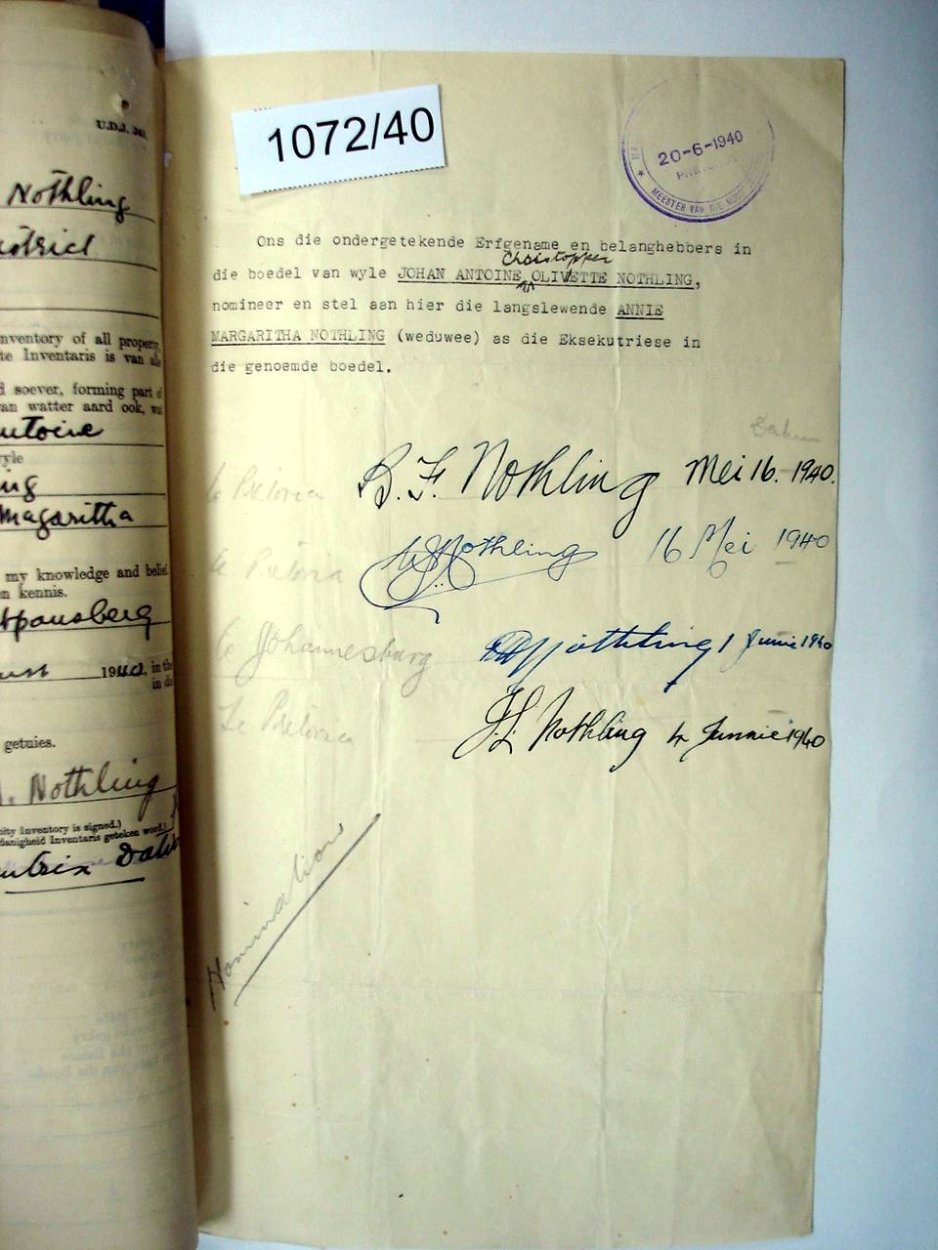 U.D.J.
Nothling
nventory of all property
te Inventaris is van
d soever, forming part
van watter aard ook,
ntoine
yle
ing
Magaritha
my knowledge and belief
en kennis.
19
in the
getuies.
Nothling
city Inventory is signed.)
danigheid Inventaris geteken word.)
1072/40
20-6-1940
MEESTER VAN DIE
Ons die ondergetekende Erfgename en belanghebbers in
Christopher
die boedel van wyle JOHAN ANTOINE OLIVETTE NOTHLING,
nomineer en stel aan hier die langslewende ANNIE
MARGARITHA NOTHLING (weduwee) as die Eksekutriese in
die genoemde boedel.
Datum
te Pretoria B. F. Nothling Mei 16. 1940.
te Pretoria Nothling 16 Mei 1940
te Johannesburg Nothling 1 Junie 1940
Te Pretoria J.L. Nothling 4 Junnie 1940
Nominations